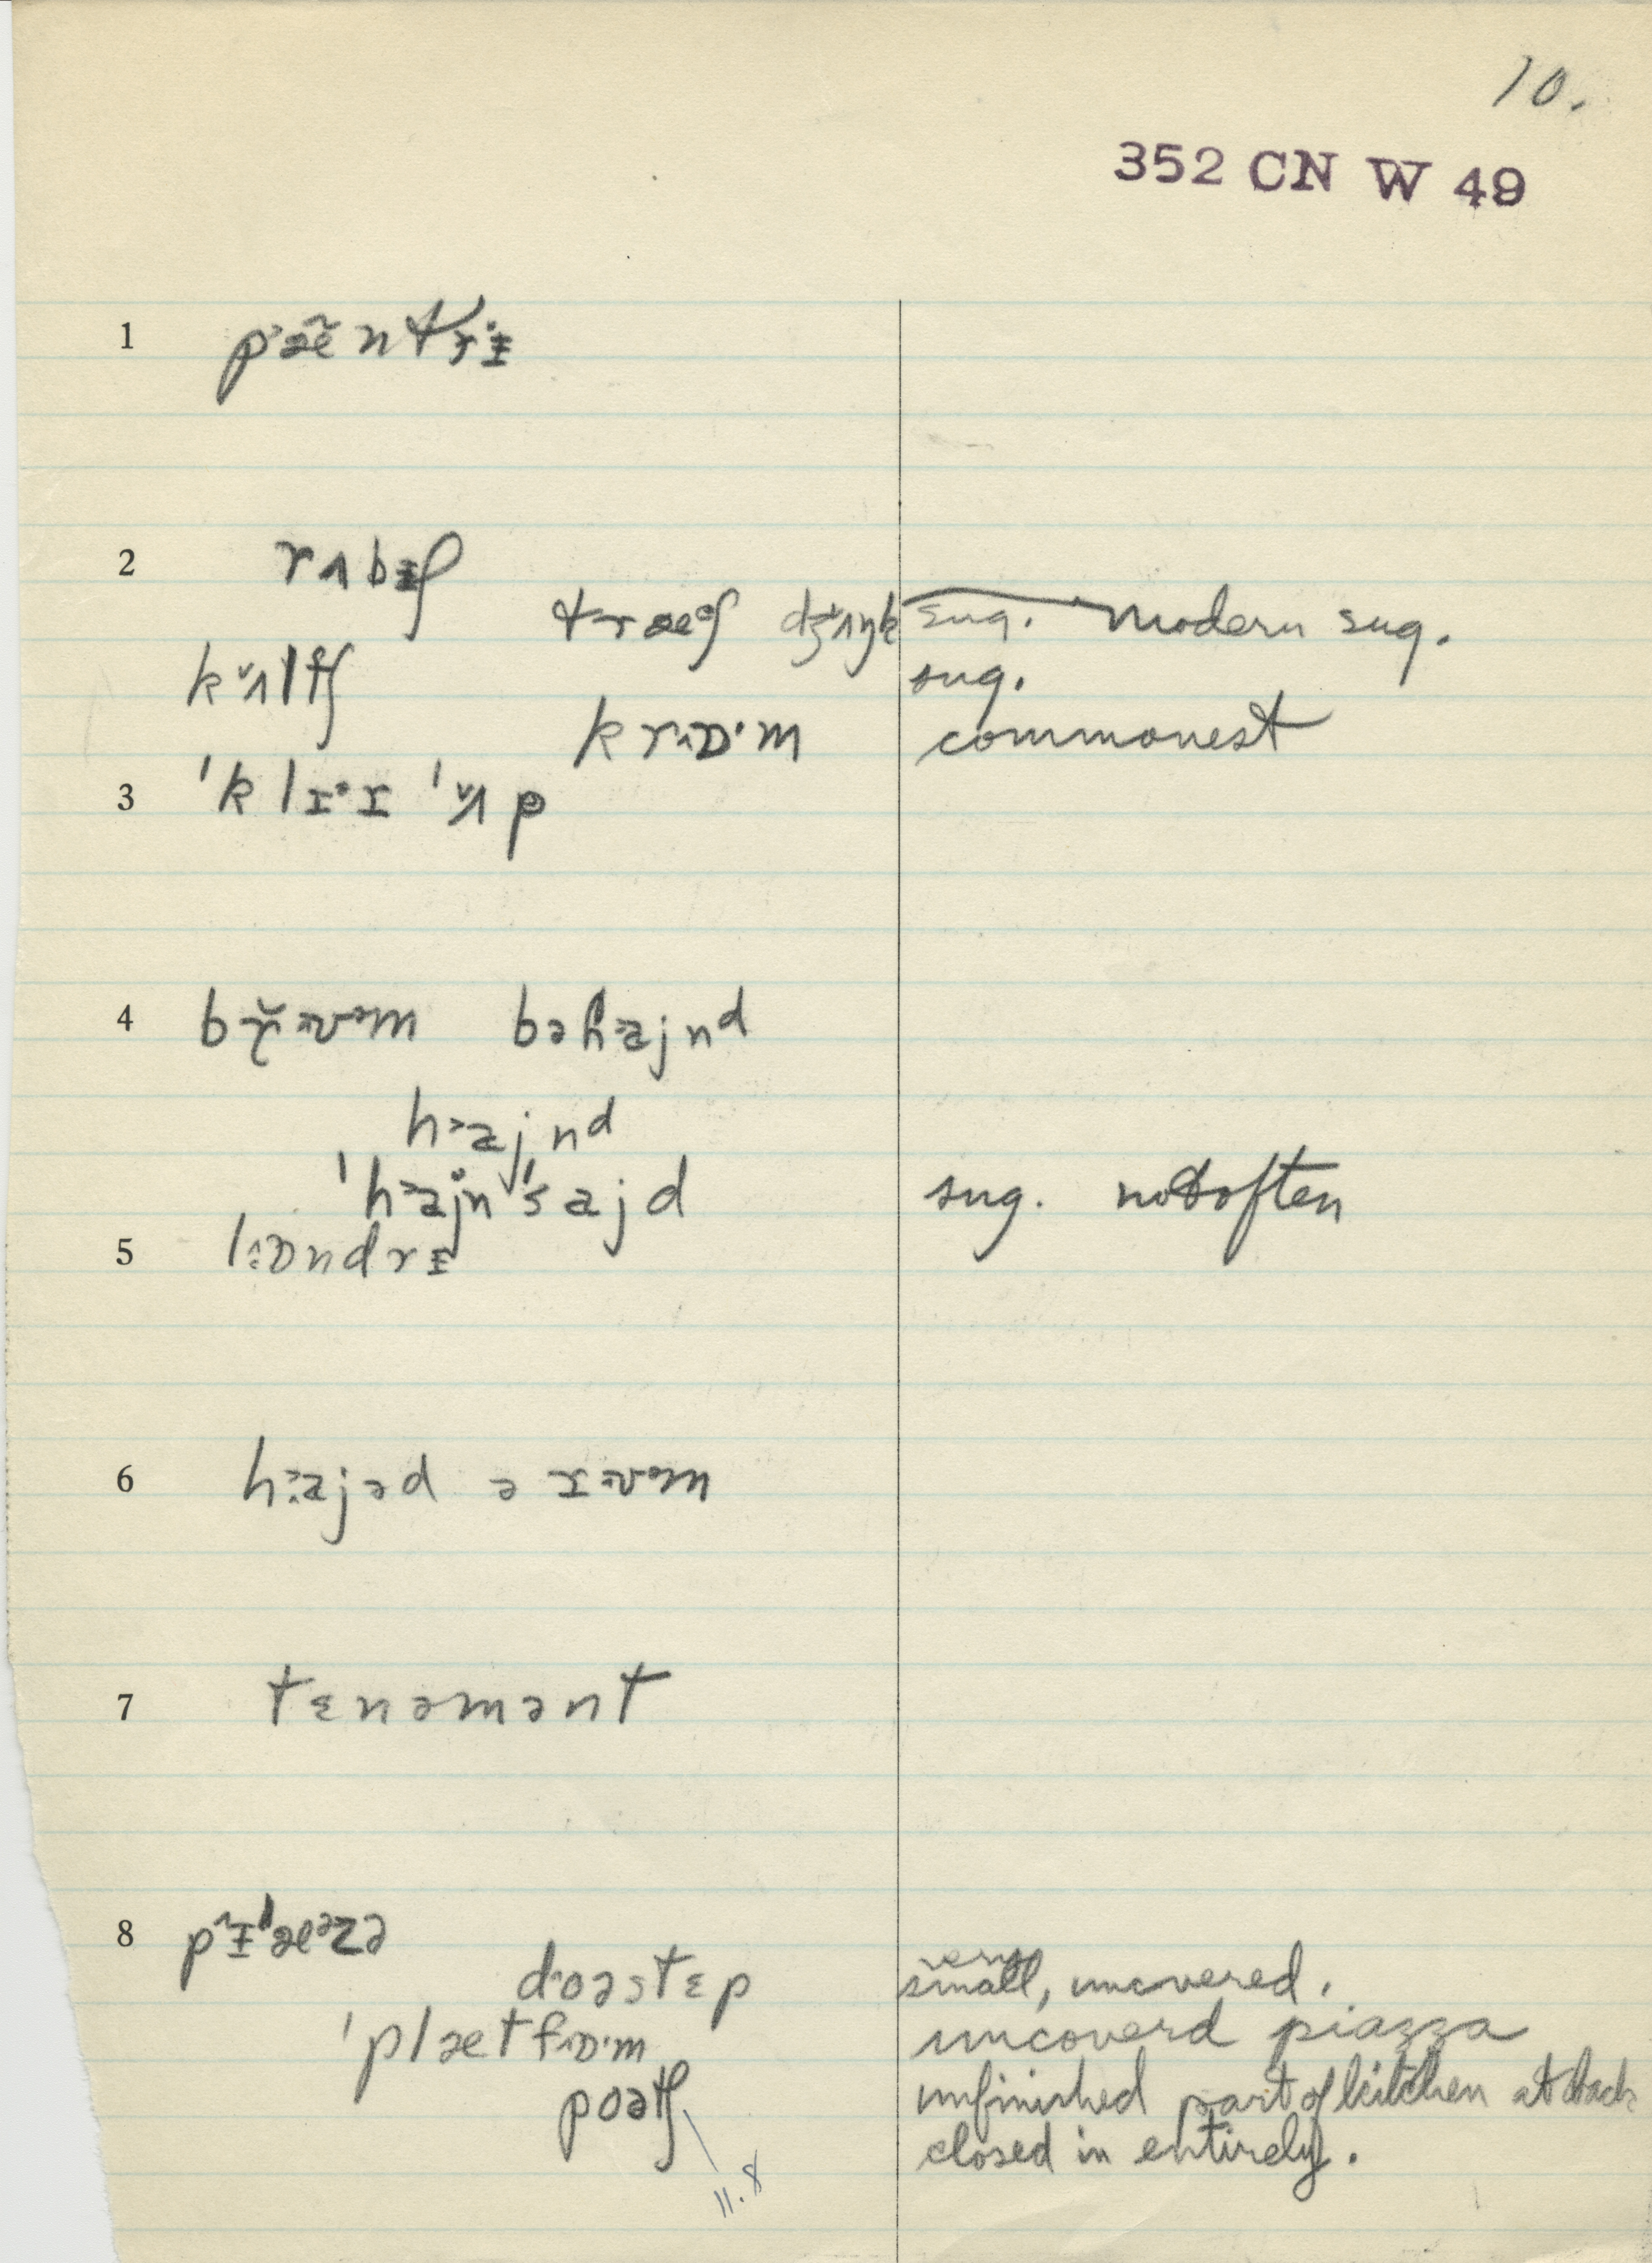 10.
352 CN W 49
1 pæ̃ntrɨ
2 rʌbɨʃ
træʃ dʒʌŋk sug. modern sug.
kʌltʃ sug.
krɒ·m commonest
3 ˈklɪ·ɪ ˈʌp
4 brʊəm bəhajnd
hajnd
ˈhajnˈsajd sug. not often
5 lɒndrɨ
6 hajəd ə rʊəm
7 tɛnəmənt
8 pɨˈæəzə
doəstɛp very small, uncovered.
ˈplætfɒ·m uncoverd piazza
poətʃ unfinished part of kitchen at back
closed in entirely.
11.8